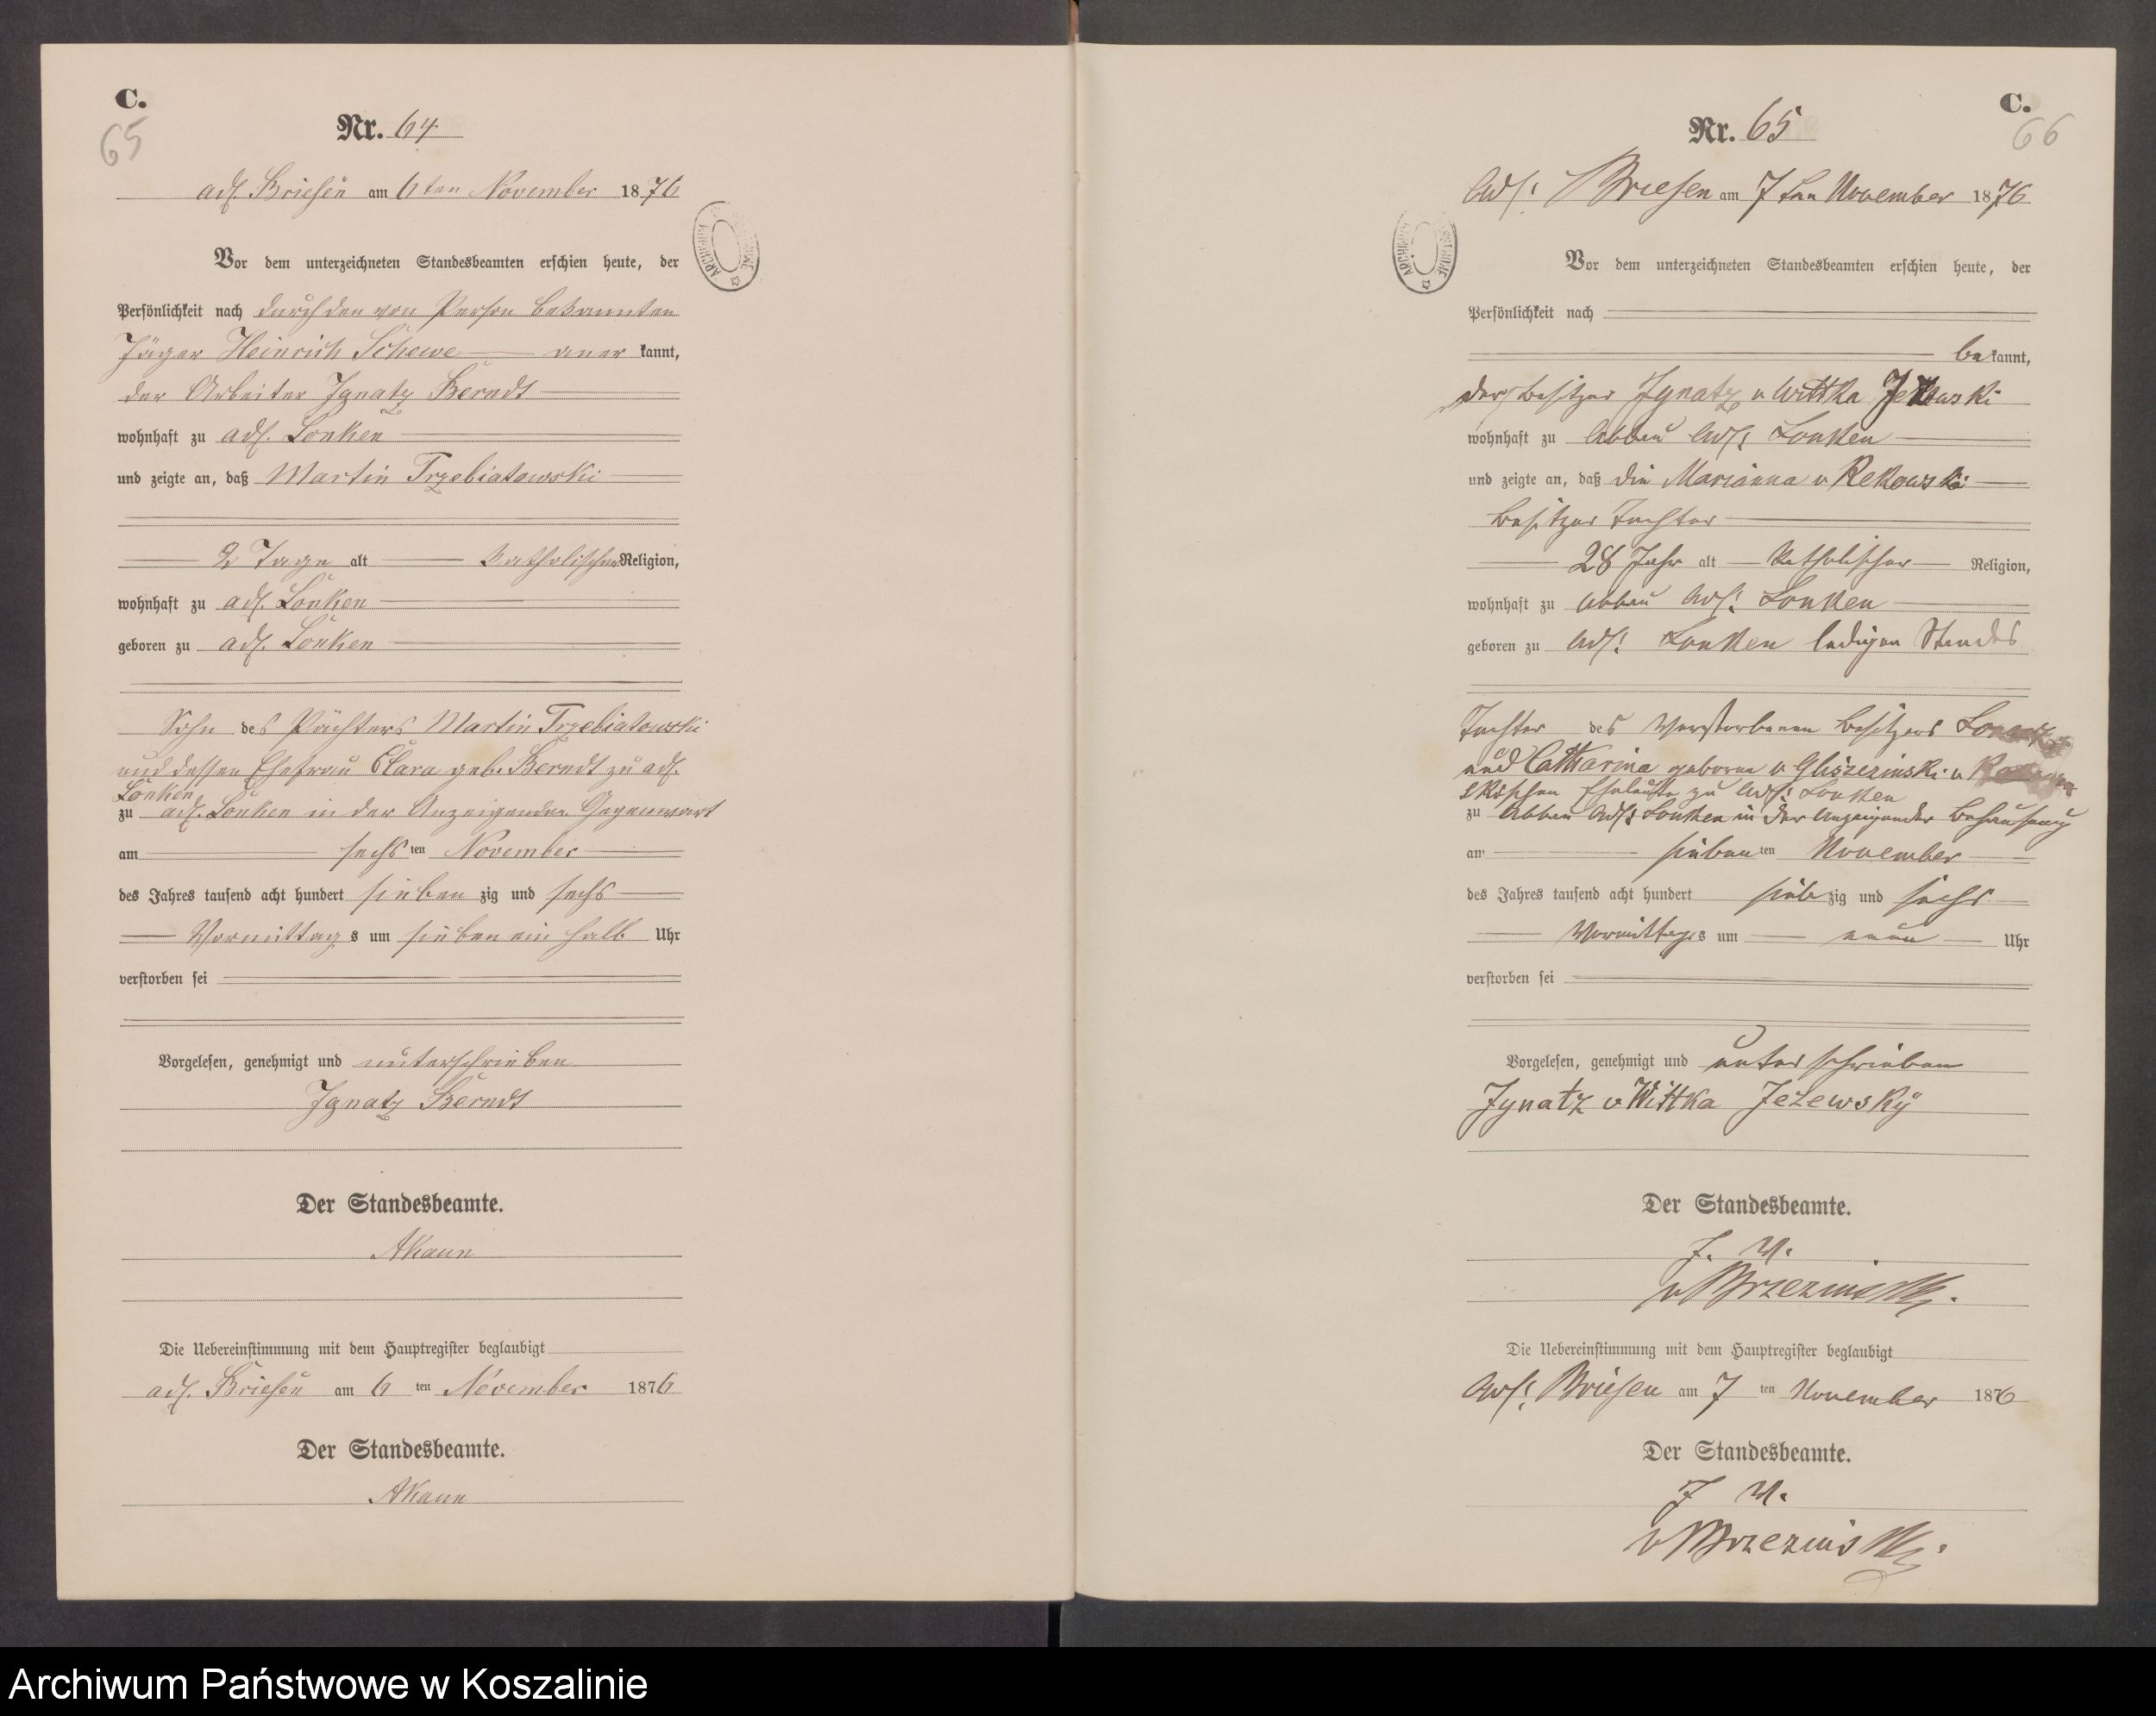 C.
65
Nr. 64
adl. Briesen am 6ten November 1876
Vor dem unterzeichneten Standesbeamten erschien heute, der
Persönlichkeit nach durch den von Person bekannten
Jäger Heinrich Schewe anerkannt,
der Arbeiter Ignatz Berndt
wohnhaft zu adl. Lonken
und zeigte an, daß Martin Trzebiatowski
2 Tage alt katholischer Religion,
wohnhaft zu adl. Lonken
geboren zu adl. Lonken
Sohn des Pächters Martin Trzebiatowski
und dessen Ehefrau Clara geb. Berndt zu adl.
Lonken
zu adl. Lonken in der Anzeigenden Gegenwart
am sechsten November
des Jahres tausend acht hundert siebenzig und sechs
Vormittags um sieben ein halb Uhr
verstorben sei
Vorgelesen, genehmigt und unterschrieben
Ignatz Berndt
Der Standesbeamte.
AKaun
Die Uebereinstimmung mit dem Hauptregister beglaubigt
adl. Briesen am 6ten November 1876
Der Standesbeamte.
AKaun
C.
66
Nr. 65
Adl: Briesen am 7ten November 1876
Vor dem unterzeichneten Standesbeamten erschien heute, der
Persönlichkeit nach
bekannt,
der Besitzer Ignatz v Wittka
wohnhaft zu Abbau Adl: Lonken
und zeigte an, daß die Marianna v Rekowski
Besitzer Tochter
28 Jahr alt Katholischer Religion,
wohnhaft zu Abbau Adl: Lonken
geboren zu Adl: Lonken ledigen Standes
Tochter des Verstorbenen Besitzers
und Catharina geborne v Gliszczinski v
Eheleute zu Adl: Lonken
zu Abbau Adl: Lonken in der Anzeigender Behausung
am siebenten November
des Jahres tausend acht hundert siebzig und sechs
Vormittags um neun Uhr
verstorben sei
Vorgelesen, genehmigt und unterschrieben
Ignatz v Wittka Jezewsky
Der Standesbeamte.
J. V.
v Brzezinski.
Die Uebereinstimmung mit dem Hauptregister beglaubigt
Adl: Briesen am 7ten November 1876
Der Standesbeamte.
J V.
v Brzezinski.
Archiwum Państwowe w Koszalinie